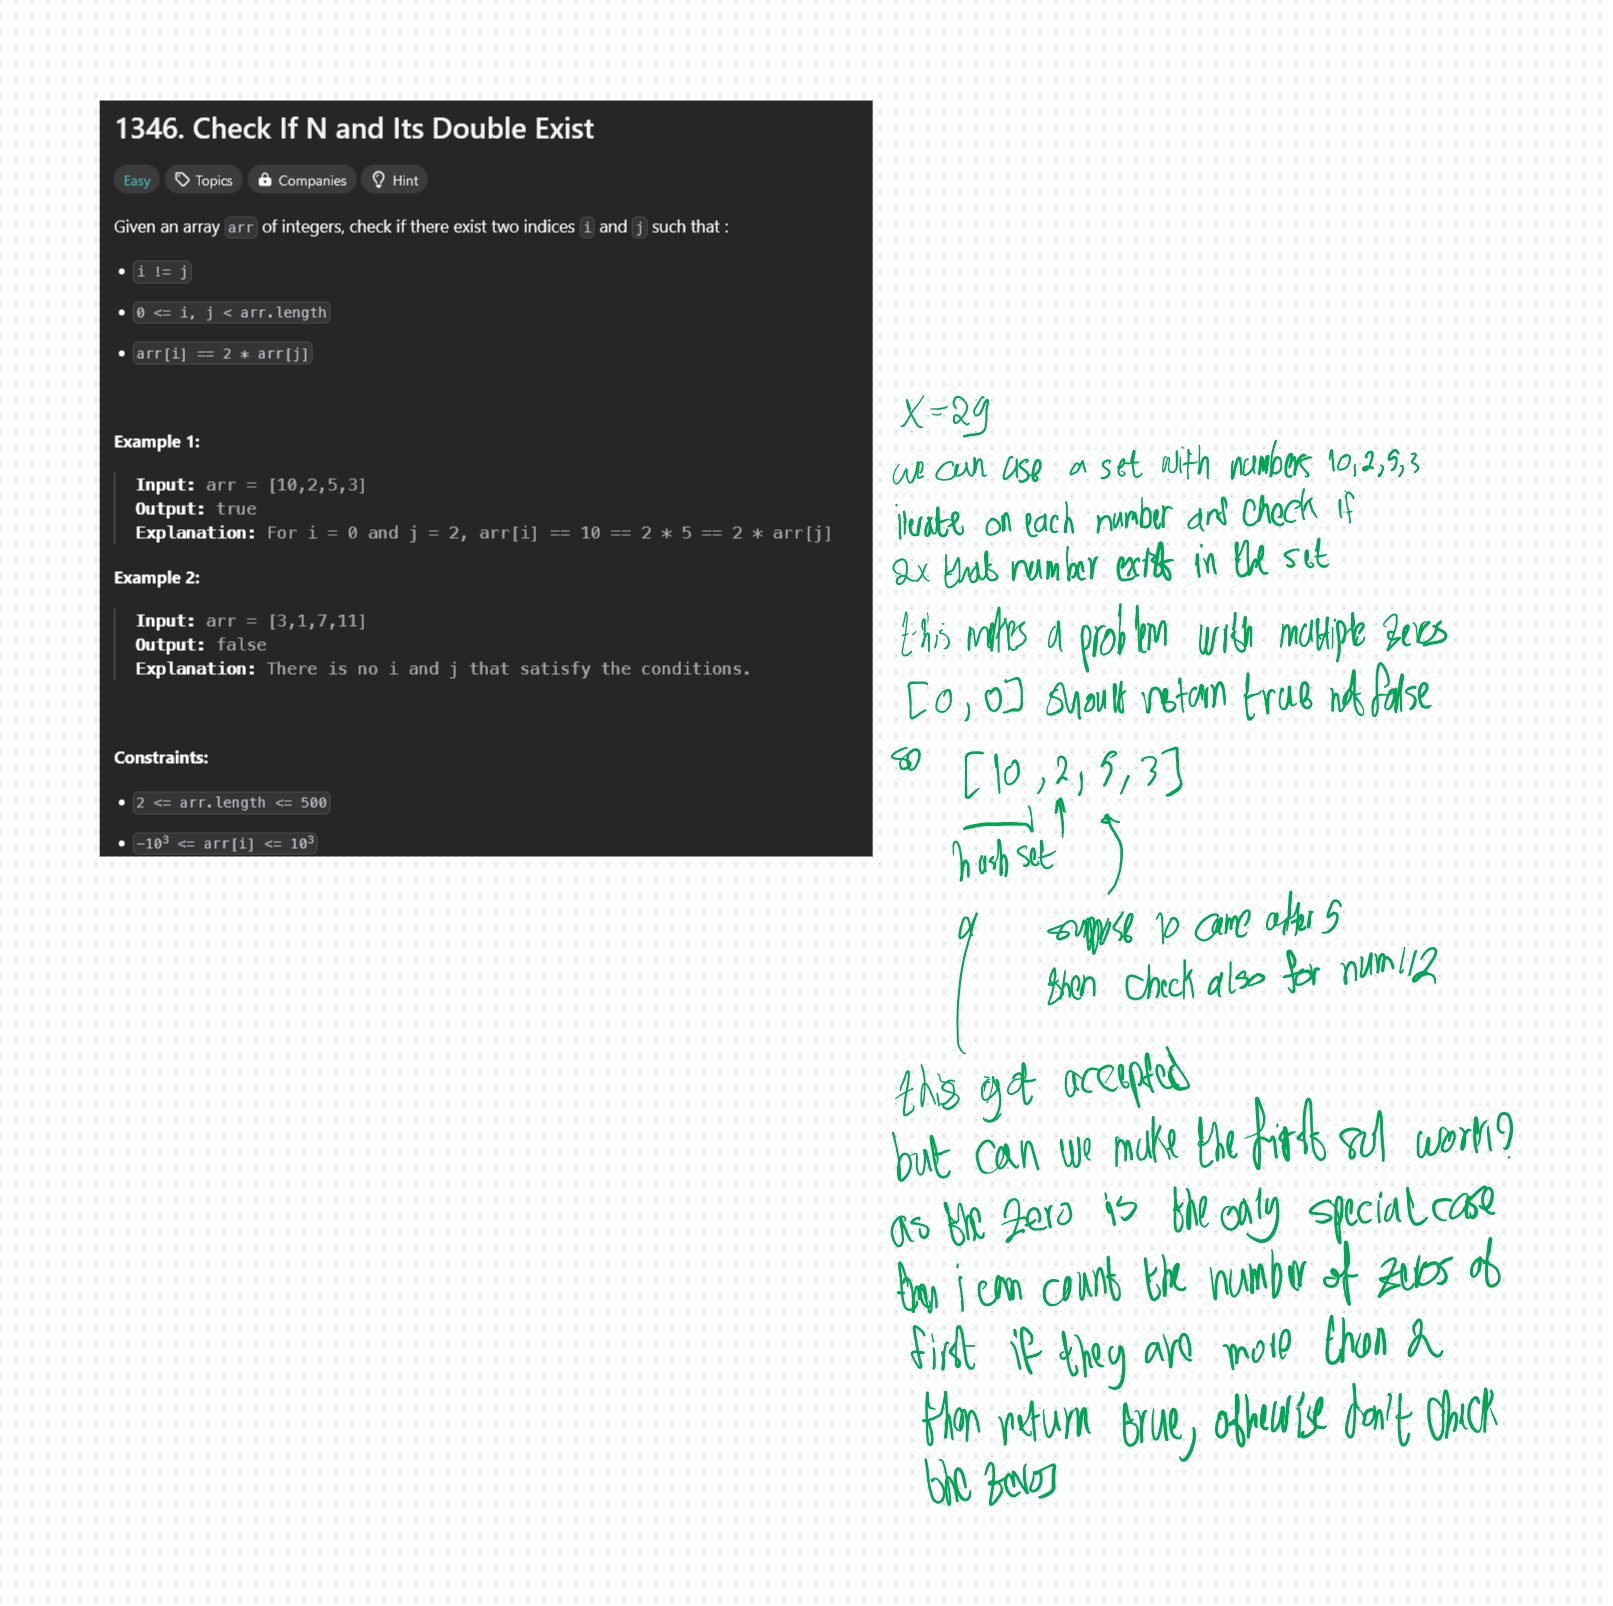 1346. Check If N and Its Double Exist
Easy Topics Companies Hint
Given an array arr of integers, check if there exist two indices i and j such that :
• i != j
• 0 <= i, j < arr.length
• arr[i] == 2 * arr[j]
Example 1:
Input: arr = [10,2,5,3]
Output: true
Explanation: For i = 0 and j = 2, arr[i] == 10 == 2 * 5 == 2 * arr[j]
Example 2:
Input: arr = [3,1,7,11]
Output: false
Explanation: There is no i and j that satisfy the conditions.
Constraints:
• 2 <= arr.length <= 500
• -10³ <= arr[i] <= 10³
X=2y
we can use a set with numbers 10,2,5,3
iterate on each number and check if
2x that number exists in the set
this makes a problem with multiple zeros
[0,0] should return true not false
so [10,2,5,3]
hash set
suppose 10 came after 5
then check also for num//2
this got accepted
but can we make the first sol work?
as the zero is the only special case
then i can count the number of zeros of
first if they are more than 2
then return true, otherwise don't check
the zeros